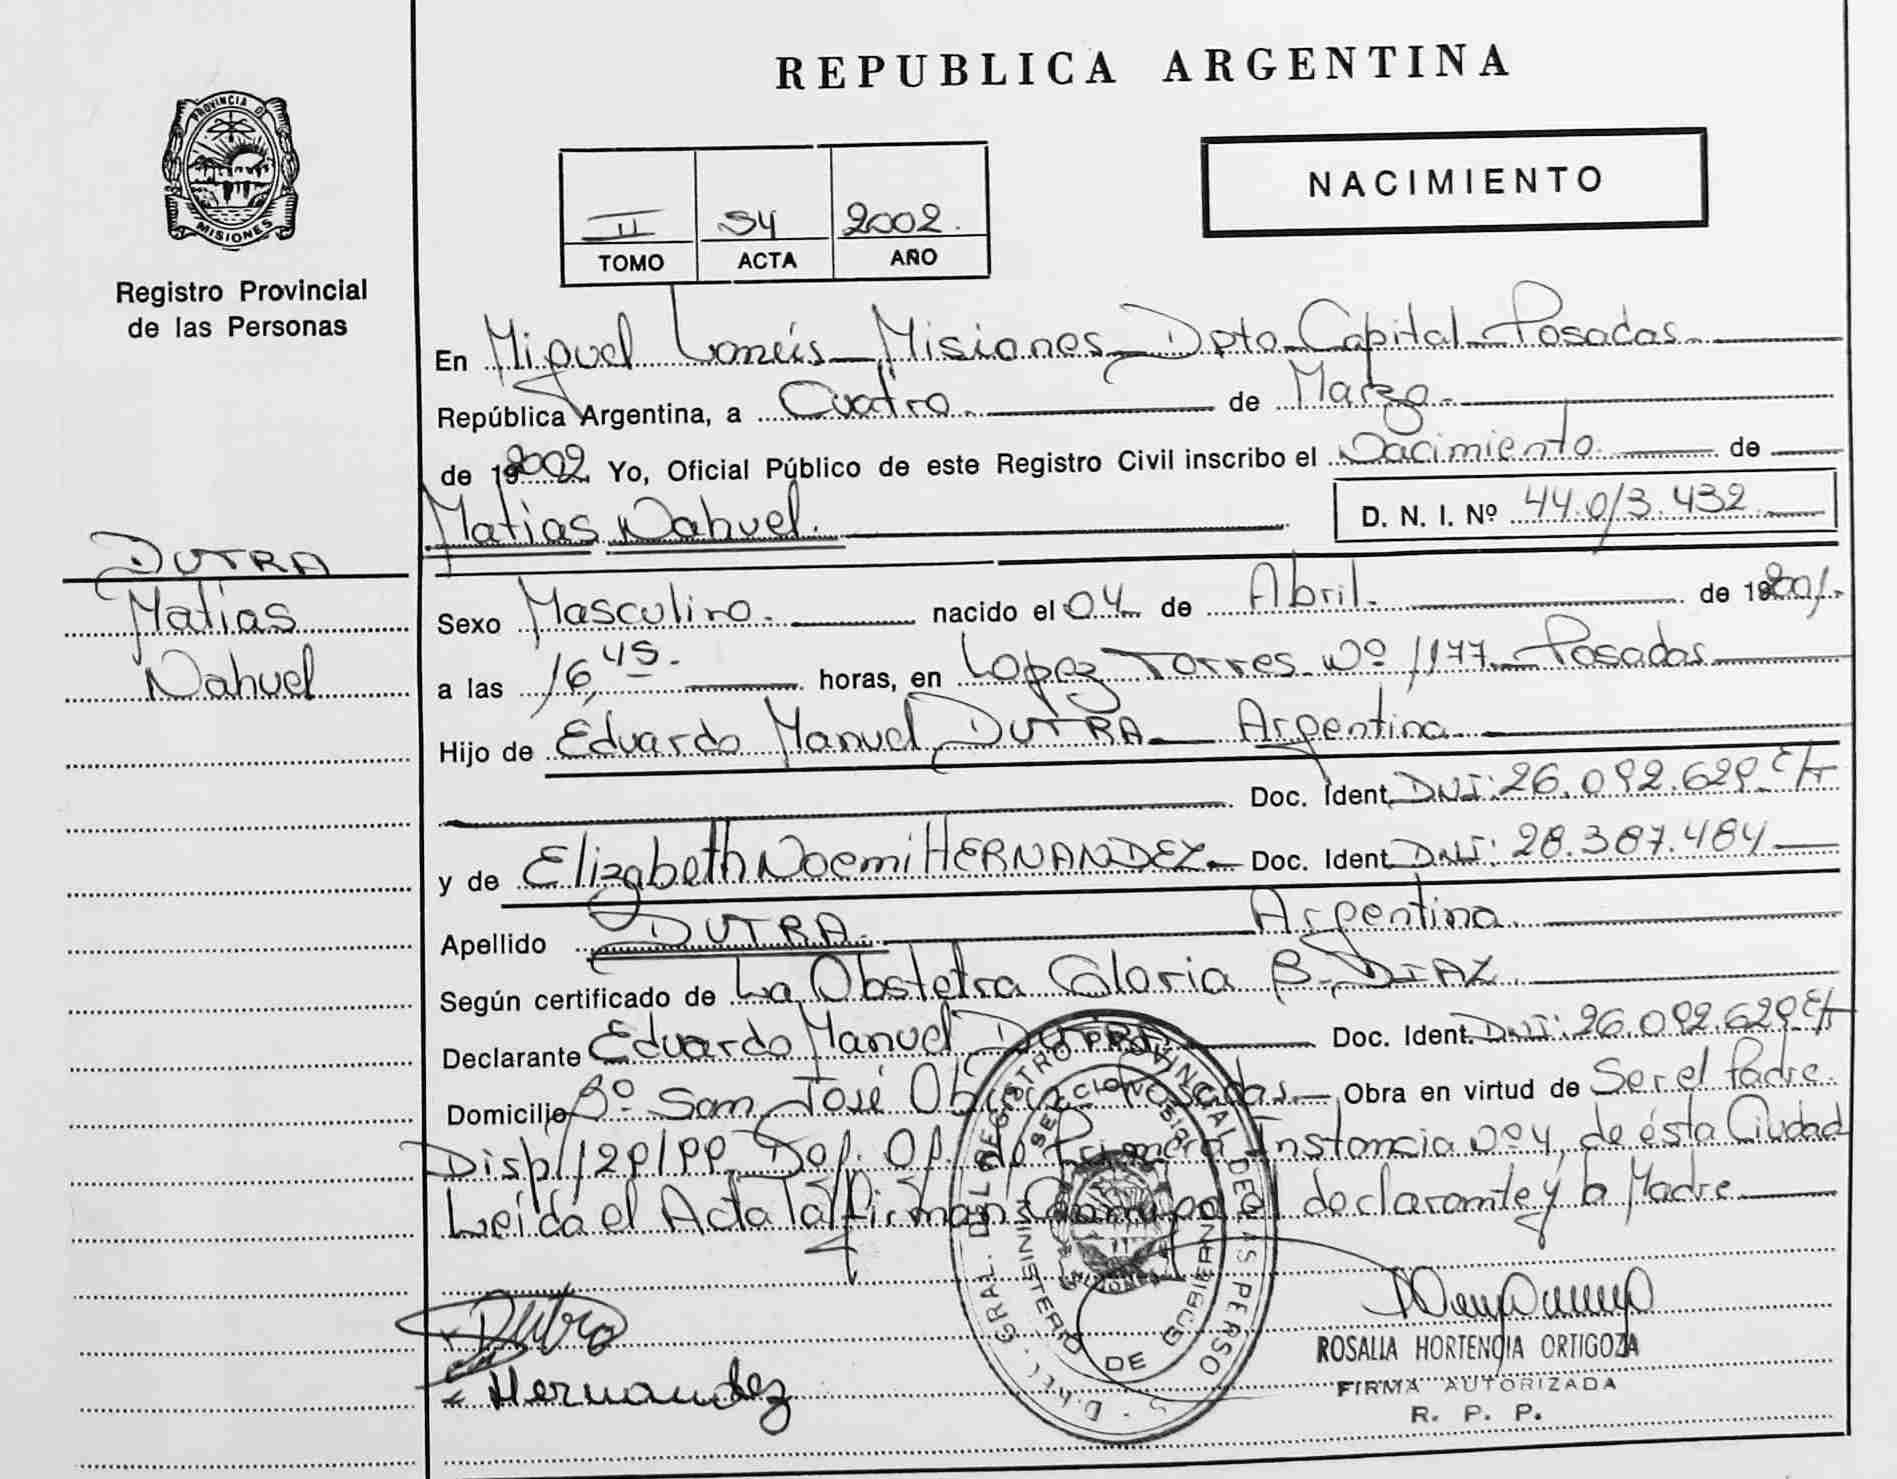 REPUBLICA ARGENTINA
PROVINCIA DE
MISIONES
Registro Provincial
de las Personas
NACIMIENTO
II 54 2002.
TOMO ACTA AÑO
En Miguel Lanús Misiones Dpto Capital Posadas
República Argentina, a Cuatro. de Marzo.
de 192002 Yo, Oficial Público de este Registro Civil inscribo el Nacimiento de
Matias Nahuel. D. N. I. Nº 44.013.432
DUTRA
Matias
Nahuel
Sexo Masculino. nacido el 04 de Abril. de 192001.
a las 16,45. horas, en Lopez Torres Nº 1177 Posadas
Hijo de Eduardo Manuel DUTRA Argentina
Doc. Ident. DNI: 26.092.629
y de Elizabeth Noemi HERNANDEZ Doc. Ident. DNI: 28.387.484
Apellido DUTRA. Argentina
Según certificado de La Obstetra Gloria B. DIAZ
Declarante Eduardo Manuel DUTRA Doc. Ident. DNI: 26.092.629
Domicilio Bº San José Posadas Obra en virtud de Ser el Padre.
Disp Primera Instancia Nº 4 de ésta Ciudad
Leída el Acta la firman declarante y la Madre
Dutra
Hernandez
GRAL. DEL REGISTRO PROVINCIAL DE LAS PERSO
MINISTERIO DE GOBIERN
MISIONES
ROSALIA HORTENCIA ORTIGOZA
FIRMA AUTORIZADA
R. P. P.